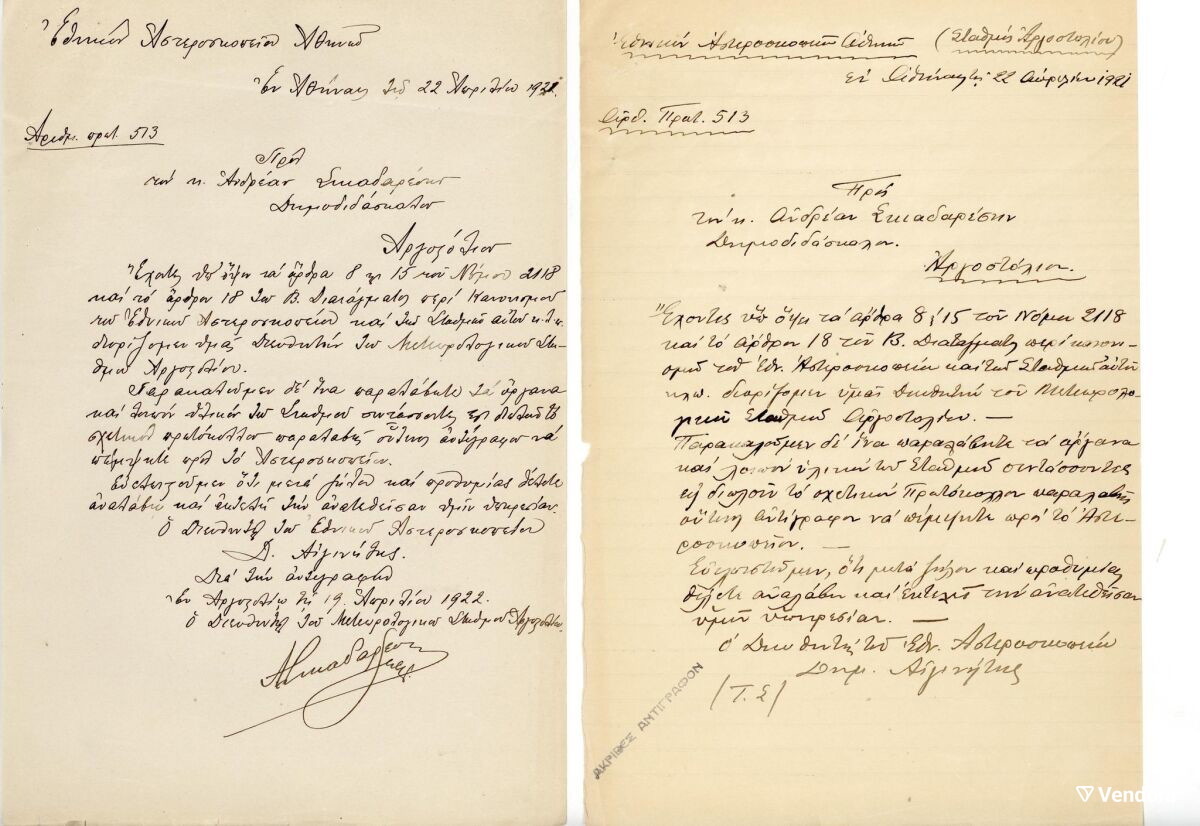 Ἐθνικὸν Ἀστεροσκοπεῖον Ἀθηνῶν
Ἐν Ἀθήναις τῇ 22 Ἀπριλίου 1921.
Ἀριθμ. πρωτ. 513
Πρὸς
τὸν κ. Ἀνδρέαν Σκιαδαρέσην
Δημοδιδάσκαλον
Ἀργοστόλιον
Ἔχοντες ὑπ' ὄψει τὰ ἄρθρα 8 καὶ 15 τοῦ Νόμου 2118
καὶ τὸ ἄρθρον 18 τοῦ Β. Διατάγματος περὶ Κανονισμοῦ
τοῦ Ἐθνικοῦ Ἀστεροσκοπείου καὶ τῶν Σταθμῶν αὐτοῦ κ.τ.λ.
διορίζομεν ὑμᾶς Διευθυντὴν τοῦ Μετεωρολογικοῦ Στα-
θμοῦ Ἀργοστολίου.
Παρακαλοῦμεν δὲ ἵνα παραλάβητε τὰ ὄργανα
καὶ λοιπὸν ὑλικὸν τοῦ Σταθμοῦ συντάσσοντες εἰς διπλοῦν τὸ
σχετικὸν πρωτόκολλον παραλαβῆς οὗτινος ἀντίγραφον νὰ
πέμψητε πρὸς τὸ Ἀστεροσκοπεῖον.
Εὐελπιστοῦμεν ὅτι μετὰ ζήλου καὶ προθυμίας θέλετε
ἀναλάβει καὶ ἐκτελῇ τὴν ἀνατεθεῖσαν ὑμῖν ὑπηρεσίαν.
Ὁ Διευθυντὴς τοῦ Ἐθνικοῦ Ἀστεροσκοπείου
Δ. Αἰγινήτης.
Διὰ τὴν ἀντιγραφὴν
Ἐν Ἀργοστολίῳ τῇ 19 Ἀπριλίου 1922.
ὁ Διευθυντὴς τοῦ Μετεωρολογικοῦ Σταθμοῦ Ἀργοστολίου
Ἐθνικὸν Ἀστεροσκοπεῖον Ἀθηνῶν (Σταθμὸς Ἀργοστολίου)
Ἐν Ἀθήναις τῇ 22 Ἀπριλίου 1921
Ἀριθ. Πρωτ. 513
Πρὸς
τὸν κ. Ἀνδρέαν Σκιαδαρέσην
Δημοδιδάσκαλον.
Ἀργοστόλιον.
Ἔχοντες ὑπ' ὄψει τὰ ἄρθρα 8 καὶ 15 τοῦ Νόμου 2118
καὶ τὸ ἄρθρον 18 τοῦ Β. Διατάγματος περὶ κανονι-
σμοῦ τοῦ Ἐθν. Ἀστεροσκοπείου καὶ τῶν Σταθμῶν αὐτοῦ
κλπ. διορίζομεν ὑμᾶς Διευθυντὴν τοῦ Μετεωρολο-
γικοῦ Σταθμοῦ Ἀργοστολίου. —
Παρακαλοῦμεν δὲ ἵνα παραλάβητε τὰ ὄργανα
καὶ λοιπὸν ὑλικὸν τοῦ Σταθμοῦ συντάσσοντες
εἰς διπλοῦν τὸ σχετικὸν Πρωτόκολλον παραλαβῆς
οὗτινος ἀντίγραφον νὰ πέμψητε πρὸς τὸ Ἀστε-
ροσκοπεῖον. —
Εὐελπιστοῦμεν, ὅτι μετὰ ζήλου καὶ προθυμίας
θέλετε ἀναλάβει καὶ ἐκτελῇ τὴν ἀνατεθεῖσαν
ὑμῖν ὑπηρεσίαν. —
Ὁ Διευθυντὴς τοῦ Ἐθν. Ἀστεροσκοπείου
Δημ. Αἰγινήτης
(Τ.Σ)
ΑΚΡΙΒΕΣ ΑΝΤΙΓΡΑΦΟΝ
Vend